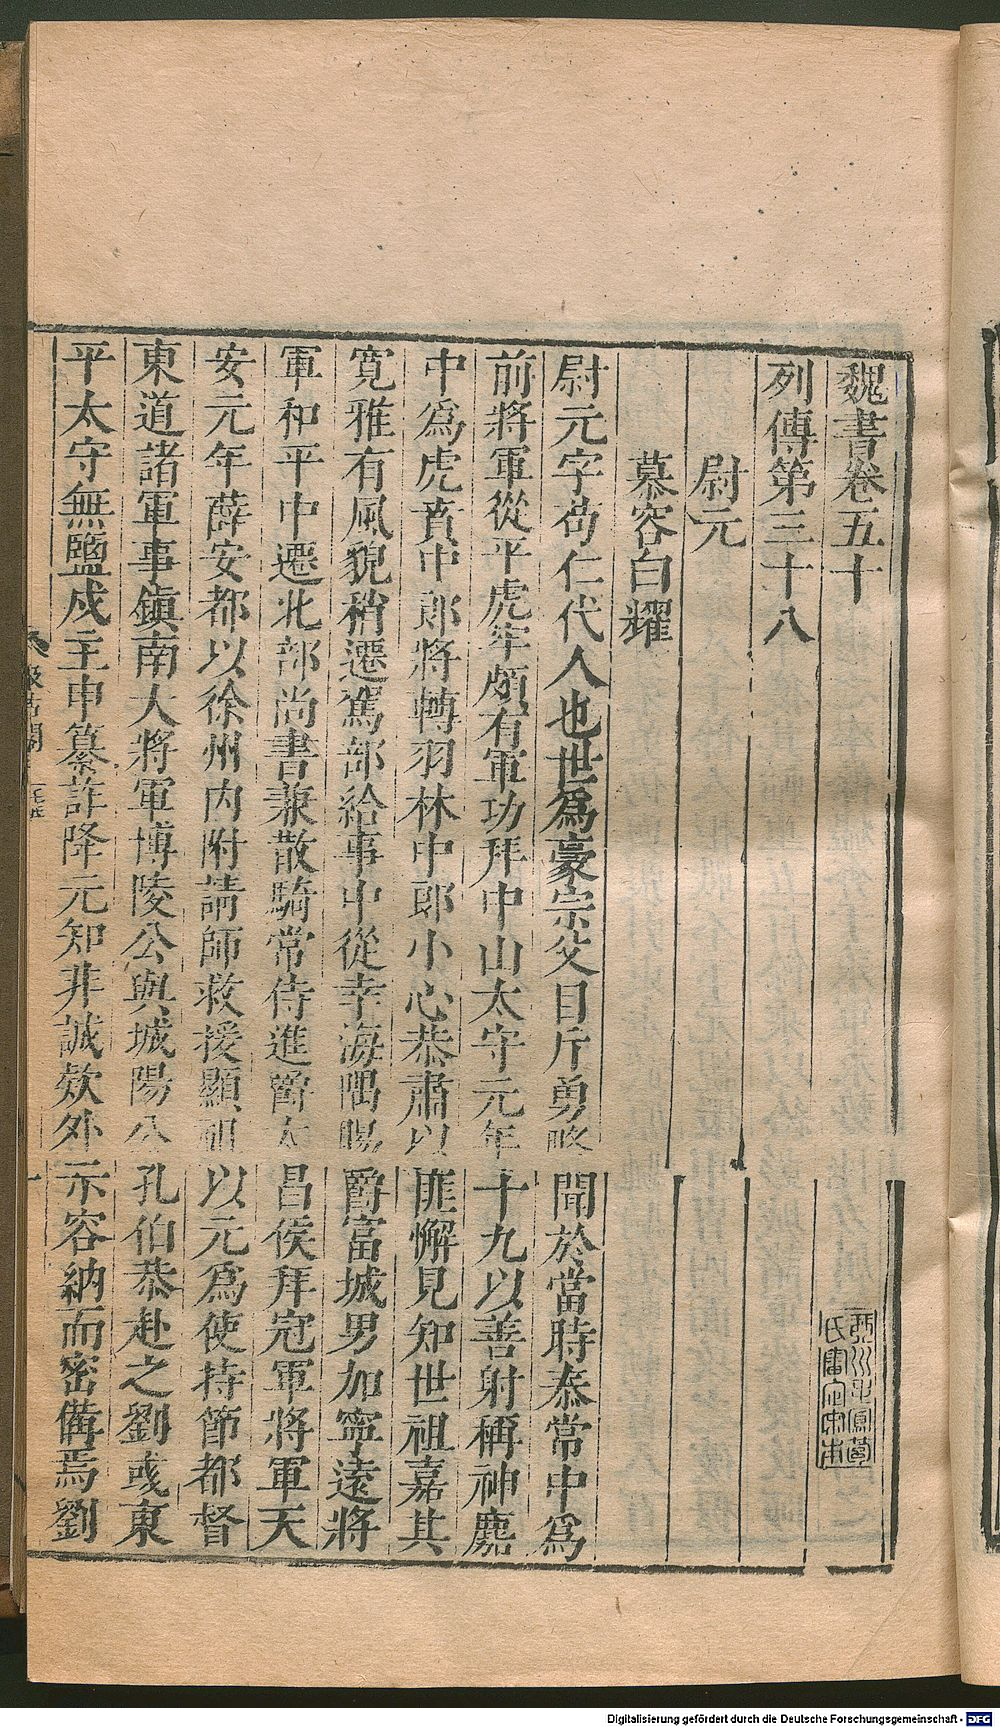 魏書卷五十
列傳第三十八
尉元
慕容白曜
尉元字苟仁代人也世爲豪宗父目斤勇略聞於當時泰常中爲
前將軍從平虎牢頗有軍功拜中山太守元年十九以善射稱神䴥
中爲虎賁中郎將轉羽林中郎小心恭肅以匪懈見知世祖嘉其
寬雅有風貌稍遷駕部給事中從幸海隅賜爵富城男加寧遠將
軍和平中遷北部尚書兼散騎常侍進爵太昌侯拜冠軍將軍天
安元年薛安都以徐州內附請師救援顯祖以元爲使持節都督
東道諸軍事鎭南大將軍博陵公與城陽公孔伯恭赴之劉彧東
平太守無鹽戍主申纂詐降元知非誠款外示容納而密備焉劉
Digitalisierung gefördert durch die Deutsche Forschungsgemeinschaft - DFG